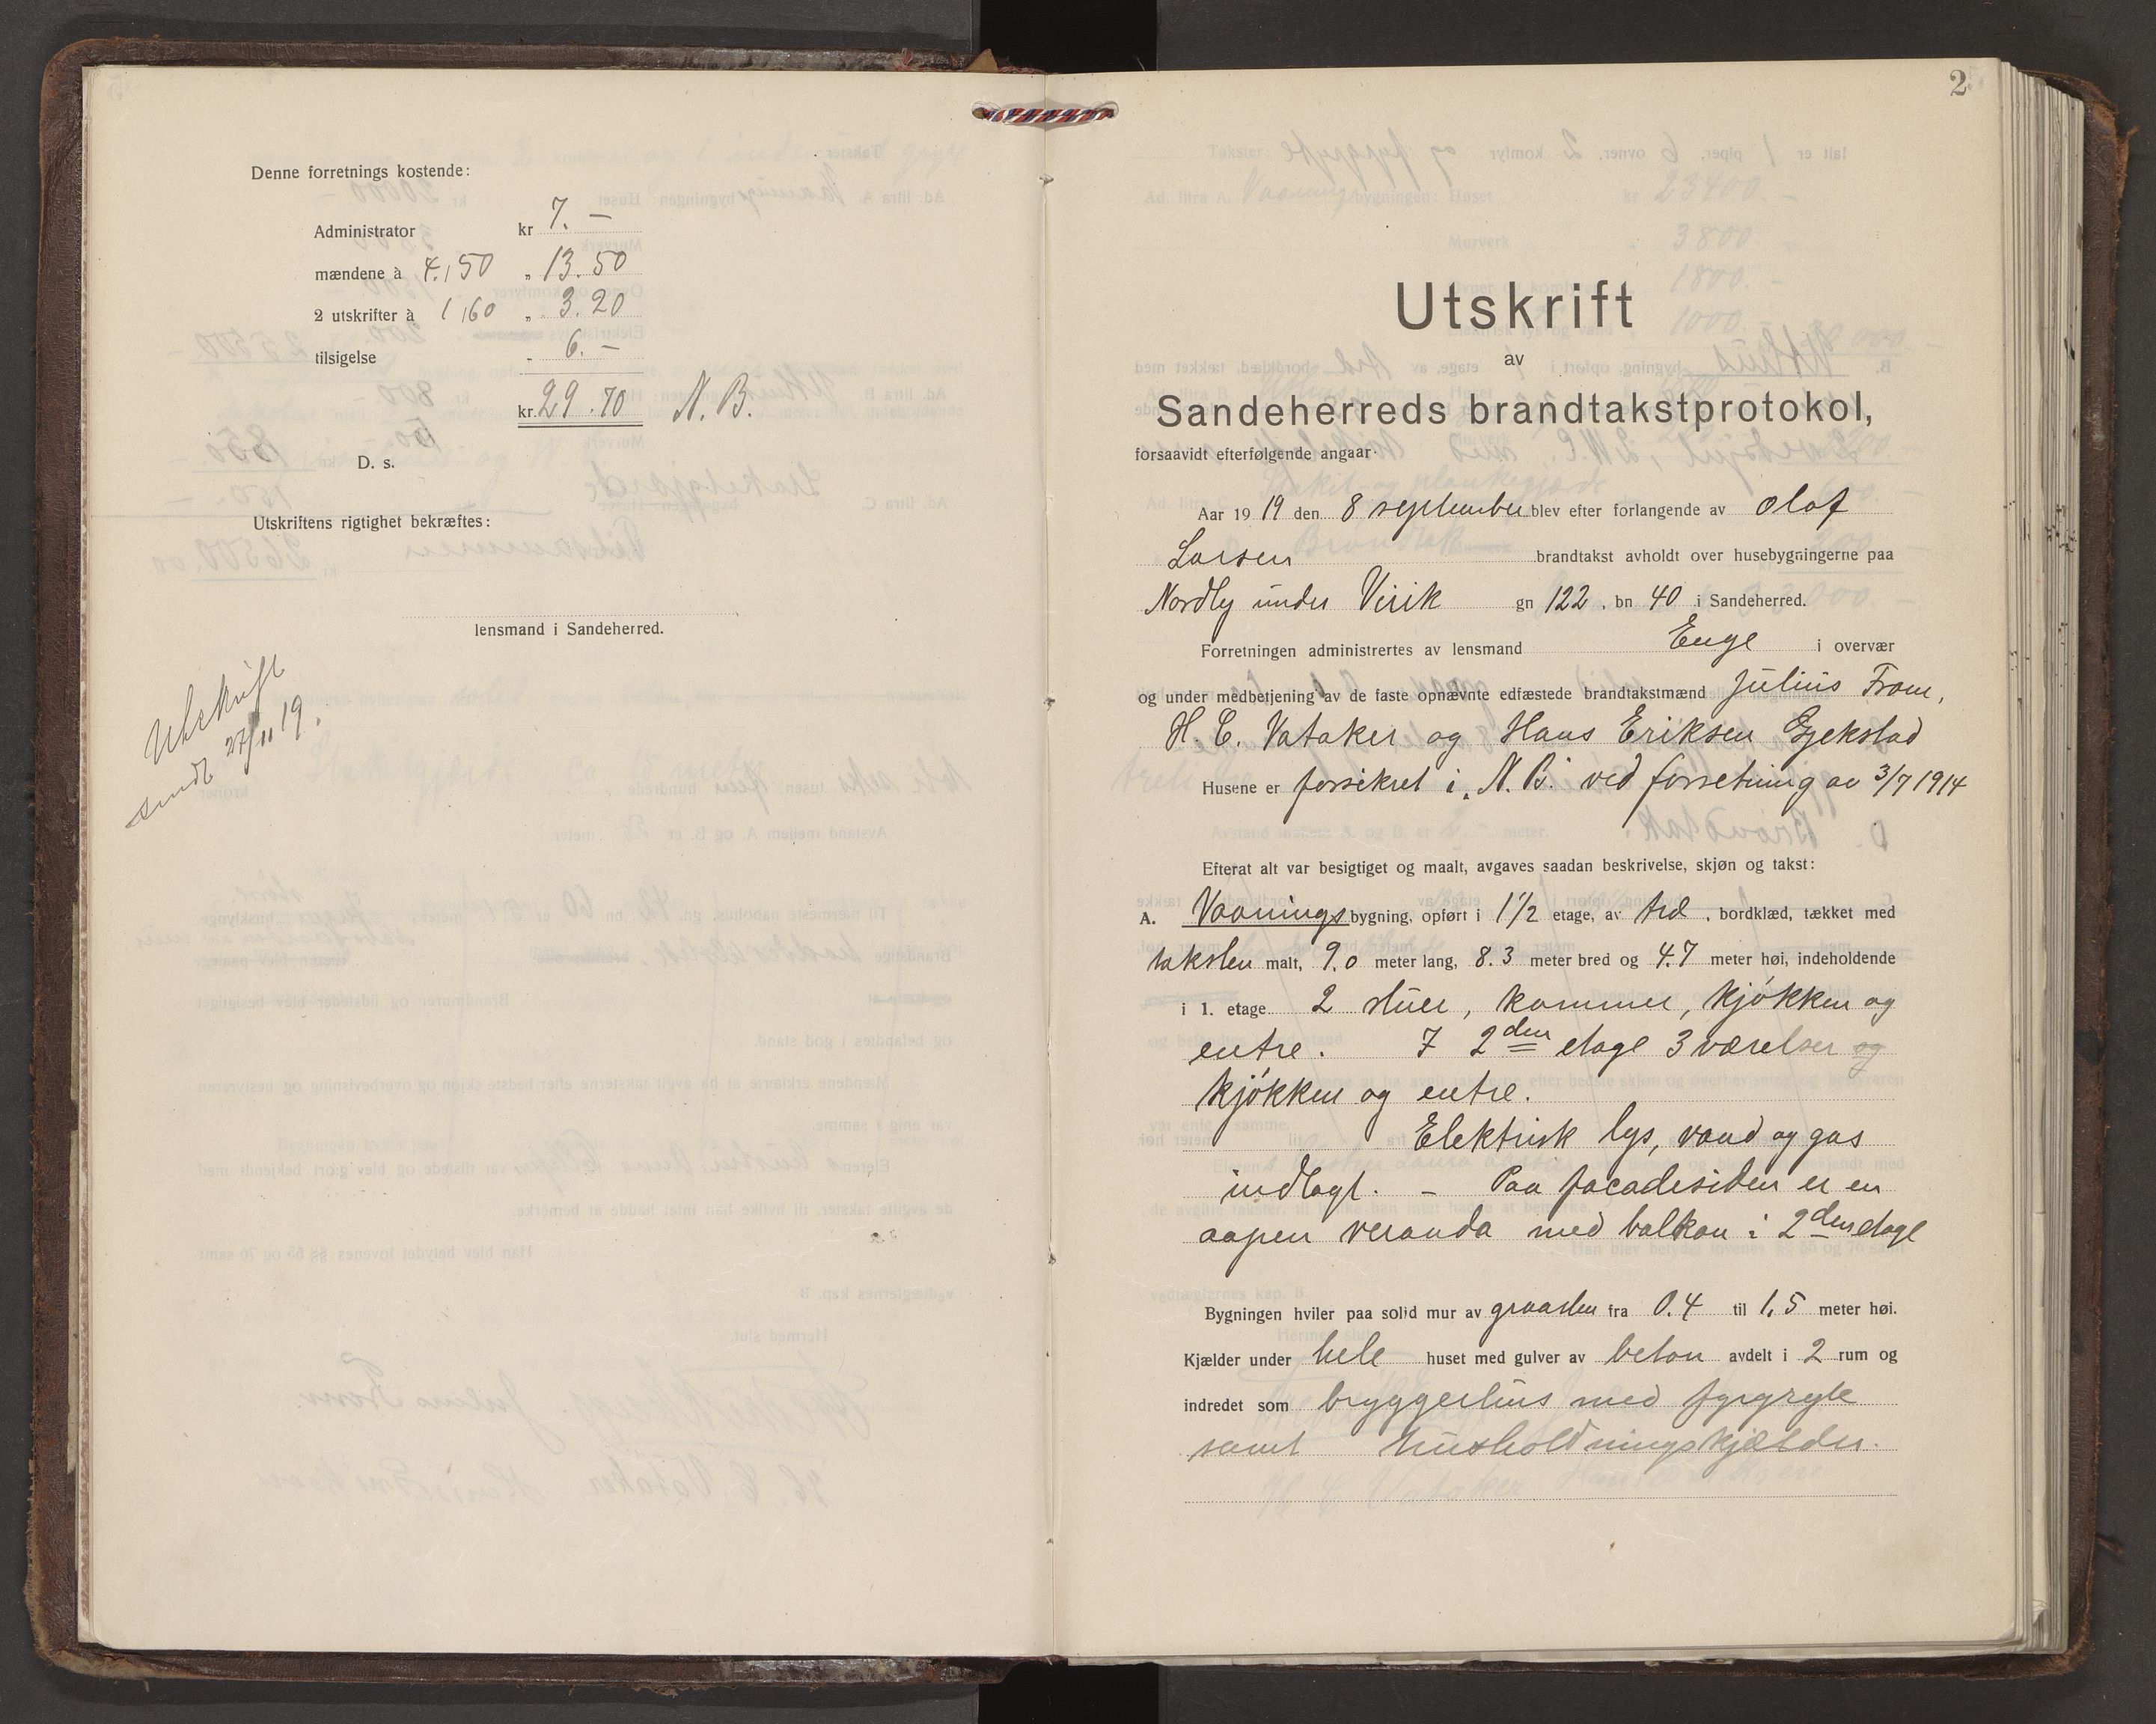 Denne forretnings kostende:
Administrator kr 7. –
mændene à 4,50 „ 13.50
2 utskrifter à 1,60 „ 3.20
tilsigelse - 6. –
kr. 29.70 N. B.
D. s.
Utskriftens rigtighet bekræftes:
lensmand i Sandeherred.
Utskrift
sendt 27/11 19.
2
Utskrift
av
Sandeherreds brandtakstprotokol,
forsaavidt efterfølgende angaar·
Aar 1919 den 8 september blev efter forlangende av Olaf
Larsen brandtakst avholdt over husebygningerne paa
Nordly under Virik gn 122, bn 40 i Sandeherred.
Forretningen administrertes av lensmand Enge i overvær
og under medbetjening av de faste opnævnte edfæstede brandtakstmænd Julius From,
H. C. Vataker og Hans Eriksen Gjekstad
Husene er forsikret i N. B. ved forretning av 3/7 1914
Efterat alt var besigtiget og maalt, avgaves saadan beskrivelse, skjøn og takst:
A. Vaanings bygning, opført i 1½ etage, av træ, bordklæd, tækket med
taksten malt, 9.0 meter lang, 8.3 meter bred og 4.7 meter høi, indeholdende
i 1. etage 2 stuer, kammer, kjøkken og
entre. I 2den etage 3 værelser og
kjøkken og entre.
Elektrisk lys, vand og gas
indlagt. – Paa facadesiden er en
aapen veranda med balkon i 2den etage
Bygningen hviler paa solid mur av graasten fra 0.4 til 1,5 meter høi.
Kjælder under hele huset med gulver av beton avdelt i 2 rum og
indredet som bryggerhus med fyrgryte
samt husholdningskjælder.